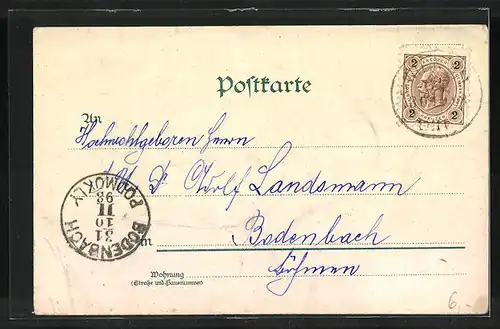 2 2
2 2
Postkarte
An
Hochwohlgeboren Herrn
D. Adolf Landsmann
in Bodenbach
Böhmen
Wohnung
(Straße und Hausnummer)
BODENBACH
21
10
11
93
PODMOKLY
6,-